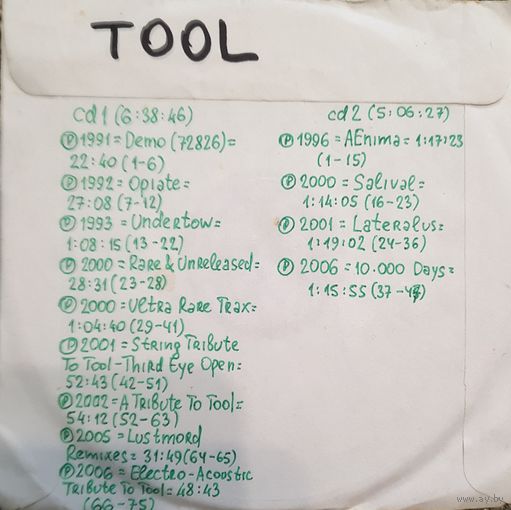 TOOL
cd1 (6:38:46)
Ⓟ 1991 = Demo (72826) =
22:40 (1-6)
Ⓟ 1992 = Opiate =
27:08 (7-12)
Ⓟ 1993 = Undertow =
1:08:15 (13-22)
Ⓟ 2000 = Rare & Unreleased =
28:31 (23-28)
Ⓟ 2000 = Ultra Rare Trax =
1:04:40 (29-41)
Ⓟ 2001 = String Tribute
To Tool - Third Eye Open =
52:43 (42-51)
Ⓟ 2002 = A Tribute To Tool =
54:12 (52-63)
Ⓟ 2005 = Lustmord
Remixes = 31:49 (64-65)
Ⓟ 2006 = Electro-Acoostic
Tribute To Tool = 48:43
(66-75)
cd2 (5:06:27)
Ⓟ 1996 = AEnima = 1:17:23
(1-15)
Ⓟ 2000 = Salival =
1:14:05 (16-23)
Ⓟ 2001 = Lateralus =
1:19:02 (24-36)
Ⓟ 2006 = 10.000 Days =
1:15:55 (37-47)
www.ay.by